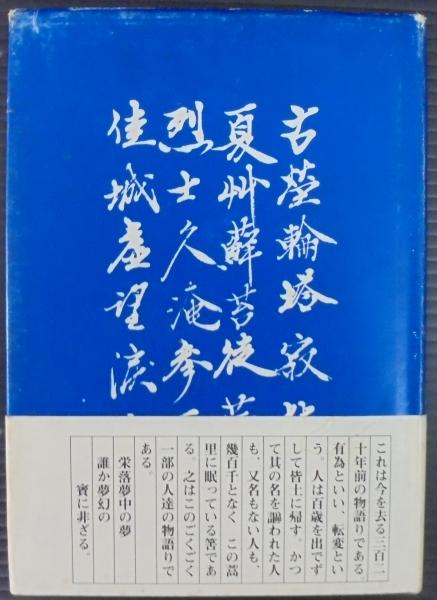 古塋輪塔寂
夏艸蘚苔徒
烈士久淹孝
佳城虚望涙
これは今を去る三百二
十年前の物語りである
有為といい、転変とい
う。人は百歳を出でず
して皆土に帰す。かつ
て其の名を謳われた人
も、又名もない人も、
幾百千となく この蒿
里に眠っている筈であ
る。之はこのごくごく
一部の人達の物語りで
ある。
栄落夢中の夢
誰か夢幻の
實に非ざる。